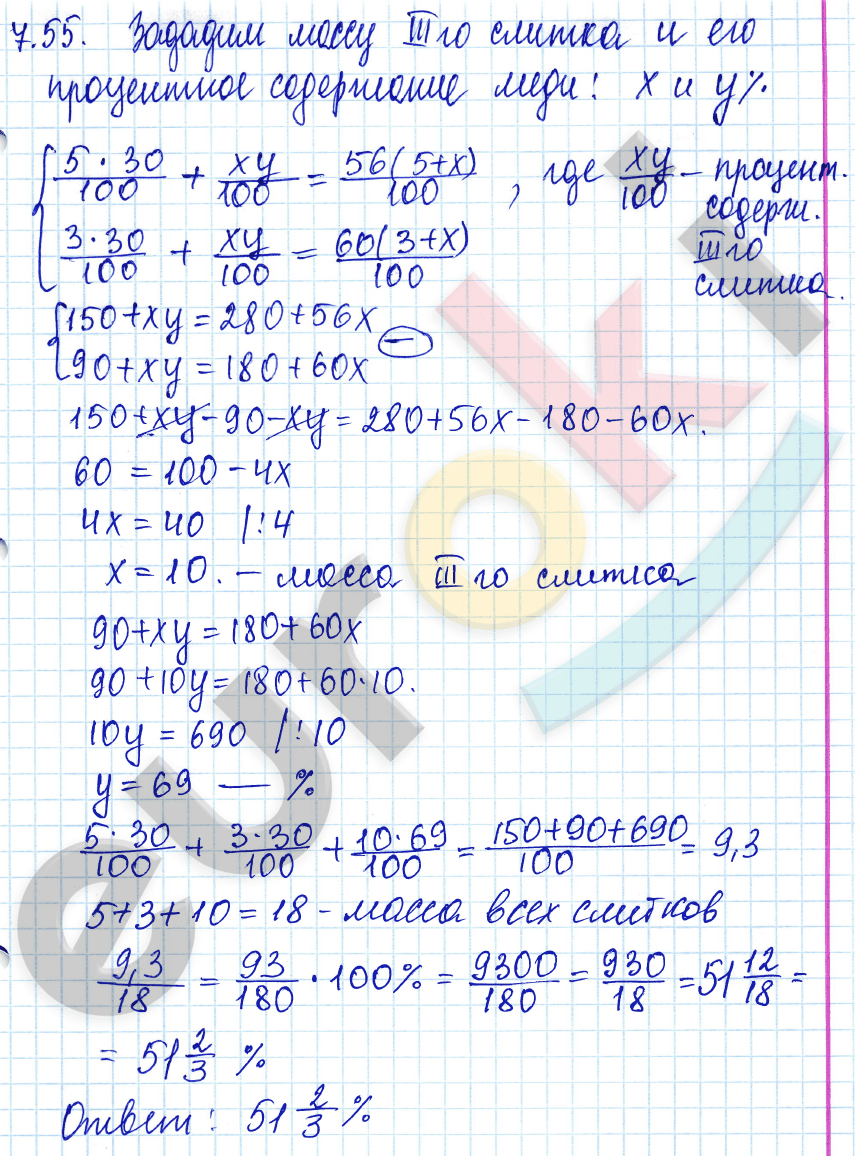 7.55. Зададим массу IIIго слитка и его
процентное содержание меди: x и y%
{ 5·30/100 + xy/100 = 56(5+x)/100 , где xy/100 – процент. содерж. IIIго слитка.
3·30/100 + xy/100 = 60(3+x)/100
{ 150+xy = 280+56x
90+xy = 180+60x (–)
150+xy-90-xy = 280+56x-180-60x.
60 = 100-4x
4x = 40 /:4
x = 10. – масса IIIго слитка
90+xy = 180+60x
90+10y = 180+60·10.
10y = 690 /:10
y = 69 — %
5·30/100 + 3·30/100 + 10·69/100 = 150+90+690/100 = 9,3
5+3+10 = 18 - масса всех слитков
9,3/18 = 93/180 · 100% = 9300/180 = 930/18 = 51 12/18 =
= 51 2/3 %
Ответ: 51 2/3 %
euroki